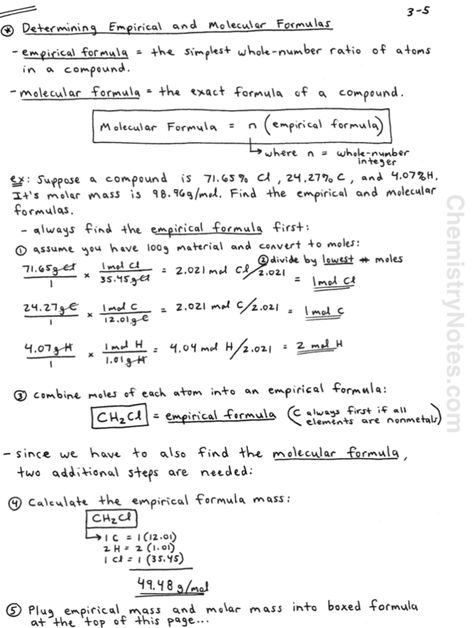 3-5
* Determining Empirical and Molecular Formulas
- empirical formula = the simplest whole-number ratio of atoms
in a compound.
- molecular formula = the exact formula of a compound.
Molecular Formula = n (empirical formula)
↳ where n = whole-number
integer
ex: Suppose a compound is 71.65% Cl, 24.27% C, and 4.07% H.
It's molar mass is 98.96g/mol. Find the empirical and molecular
formulas.
- always find the empirical formula first:
① assume you have 100g material and convert to moles:
② divide by lowest # moles
71.65g Cl / 1 × 1 mol Cl / 35.45g Cl = 2.021 mol Cl / 2.021 = 1 mol Cl
24.27g C / 1 × 1 mol C / 12.01g C = 2.021 mol C / 2.021 = 1 mol C
4.07g H / 1 × 1 mol H / 1.01g H = 4.04 mol H / 2.021 = 2 mol H
③ combine moles of each atom into an empirical formula:
CH₂Cl = empirical formula (C always first if all
elements are nonmetals)
- since we have to also find the molecular formula,
two additional steps are needed:
④ Calculate the empirical formula mass:
CH₂Cl
↳ 1 C = 1(12.01)
2 H = 2(1.01)
1 Cl = 1(35.45)
49.48 g/mol
⑤ Plug empirical mass and molar mass into boxed formula
at the top of this page...
ChemistryNotes.com